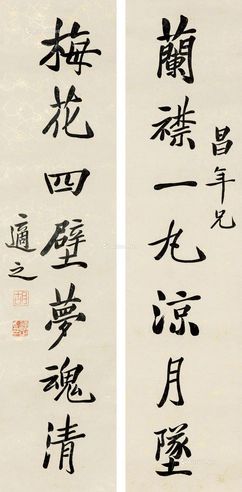 昌年兄
蘭襟一丸涼月墜
梅花四壁夢魂清
適之